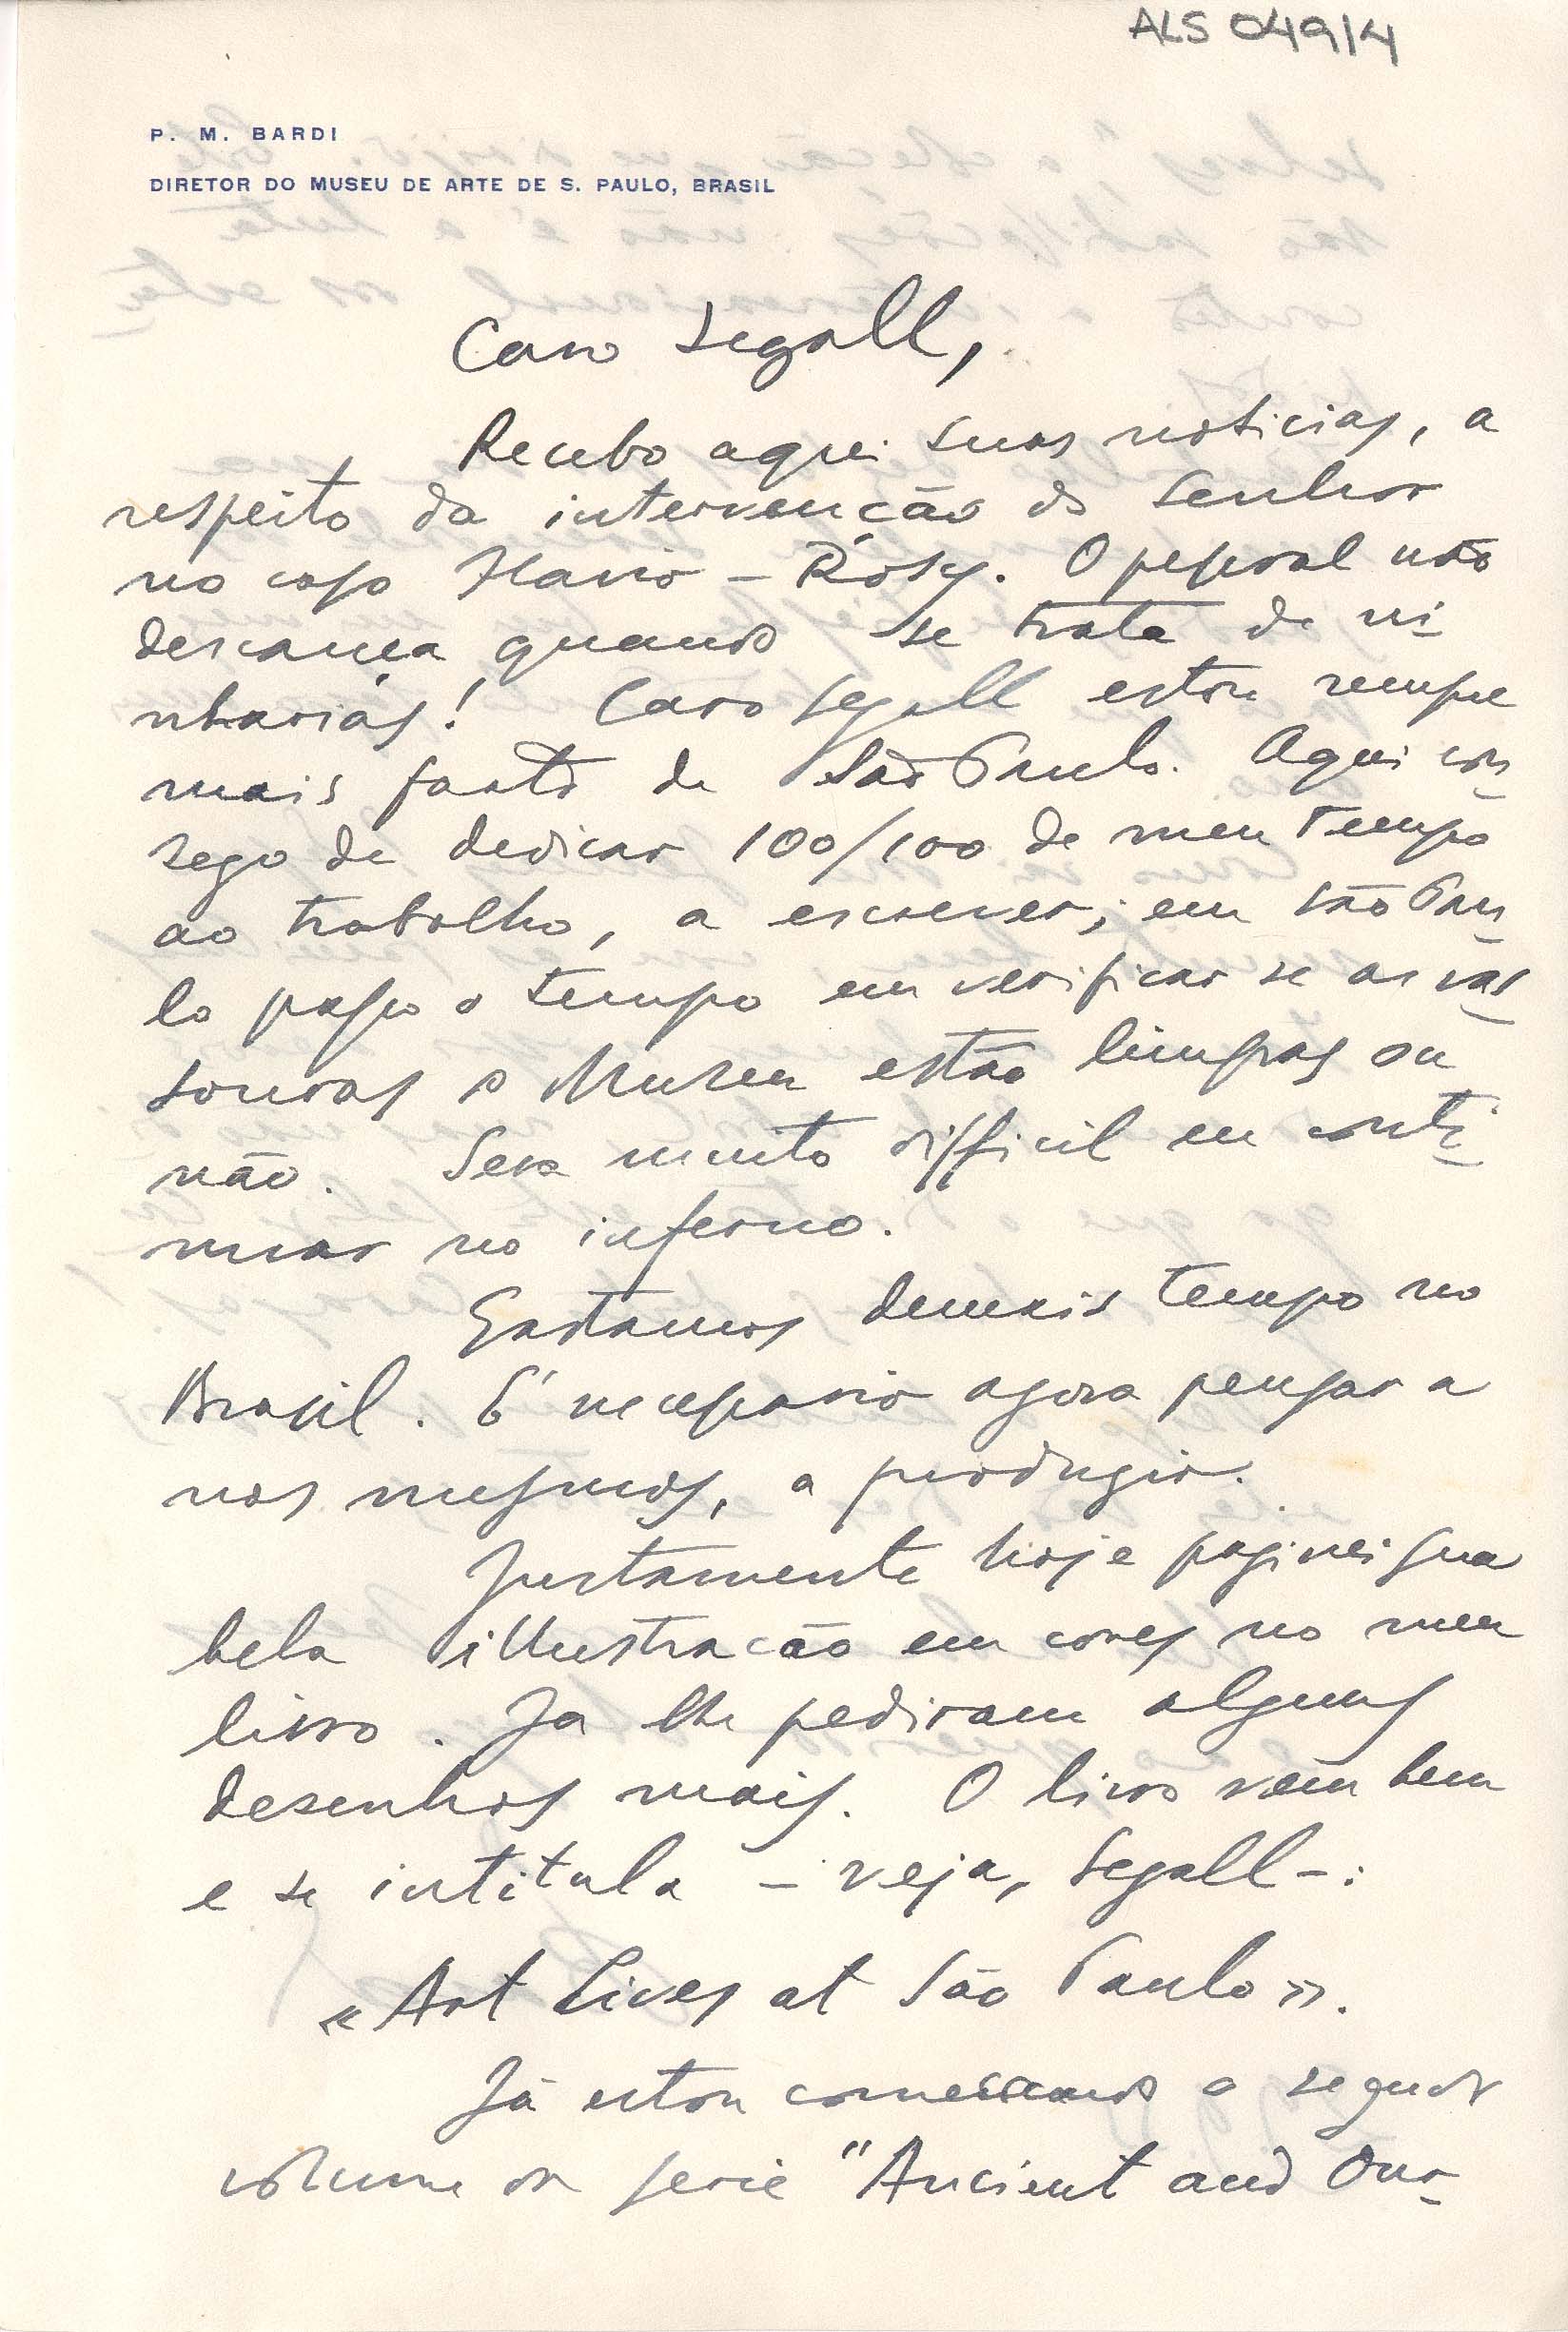 ALS 049/4
P. M. BARDI
DIRETOR DO MUSEU DE ARTE DE S. PAULO, BRASIL
Caro Segall,
Recebo aqui suas noticias, a
respeito da intervencão do Senhor
no caso Flavio – Rosy. O pessoal não
descança quando se trata de ni-
nharias! Caro Segall estou sempre
mais farto de São Paulo. Aqui con-
sego de dedicar 100/100 de meu tempo
ao trabalho, a escrever; em São Pau-
lo passo o tempo em verificar se as vas-
souras o Museu estão limpas ou
não. Sera muito difficil eu conti-
nuar no inferno.
Gastamos demais tempo no
Brasil. É necessario agora pensar a
nos mesmos, a produzir.
Justamente hoje paginei sua
bela illustracão em cores no meu
livro. Ja lhe pediram alguns
desenhos mais. O livro vem bem
e se intitula – veja, Segall –:
«Art Lives at São Paulo».
Já estou comessando o segundo
volume da serie "Ancient and Our-